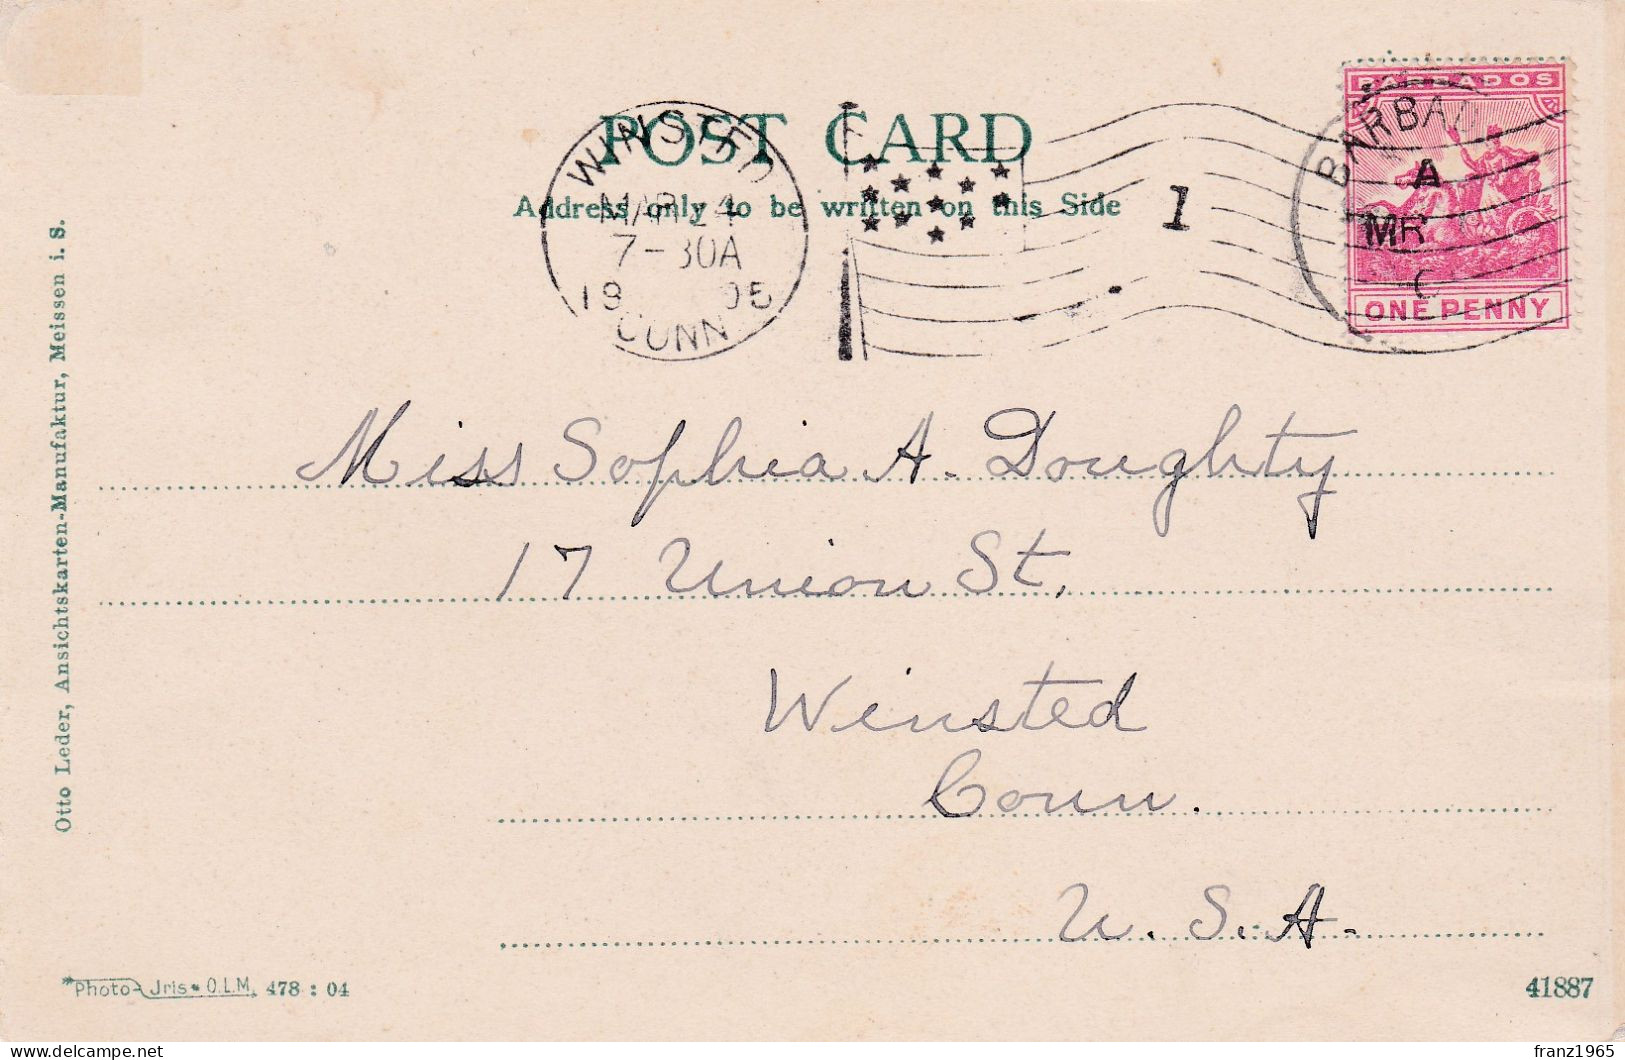 POST CARD
Address only to be written on this Side
WINSTED
MAR 24
7-30A
19 05
CONN
1
BARBADOS
ONE PENNY
BARBAD
A
MR
Miss Sophia A. Doughty
17 Union St.
Winsted
Conn.
U. S. A.
Otto Leder, Ansichtskarten-Manufaktur, Meissen i. S.
Photo-Jris • O.L.M. 478 : 04
41887
franz1965